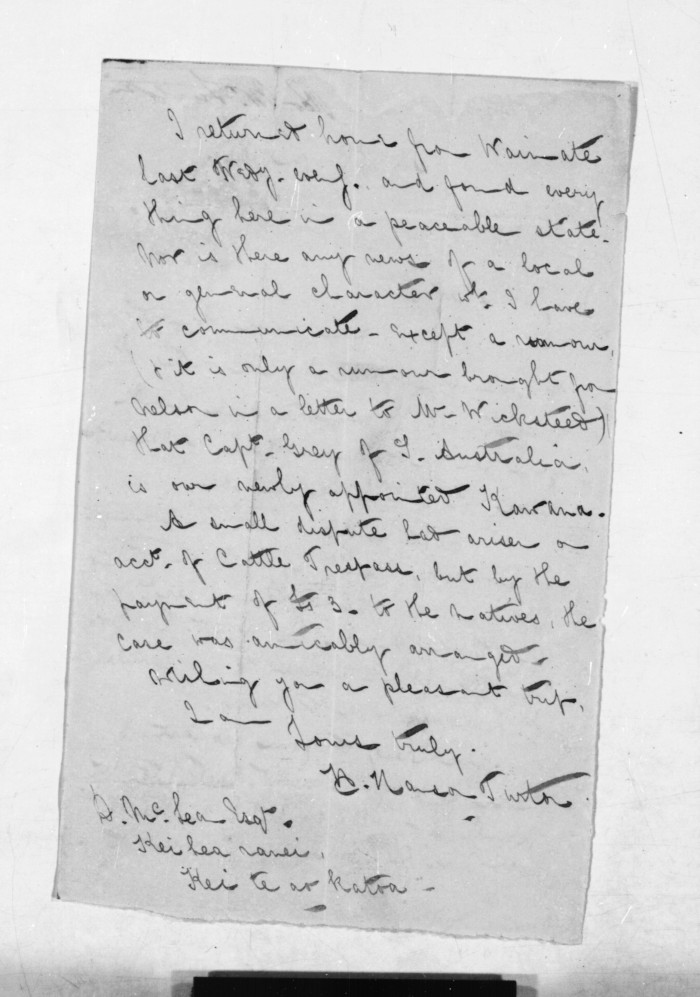 I returned home from Waimate
last Wedy. eveng., and found every
thing here in a peaceable state.
Nor is there any news of a local
or general character wh. I have
to communicate - except a rumour,
(& it is only a rumour brought from
Nelson in a letter to Mr. Wicksteed)
that Capt. Grey of S. Australia,
is our newly appointed Kawana.
A small dispute had arisen on
acct. of Cattle Trespass, but by the
payment of £3. to the natives, the
case was amicably arranged.
Wishing you a pleasant trip,
I am
Yours truly.
H. Hanson Turton.
D. McLean Esqr.
Kei hea ranei,
Kei te ao katoa -